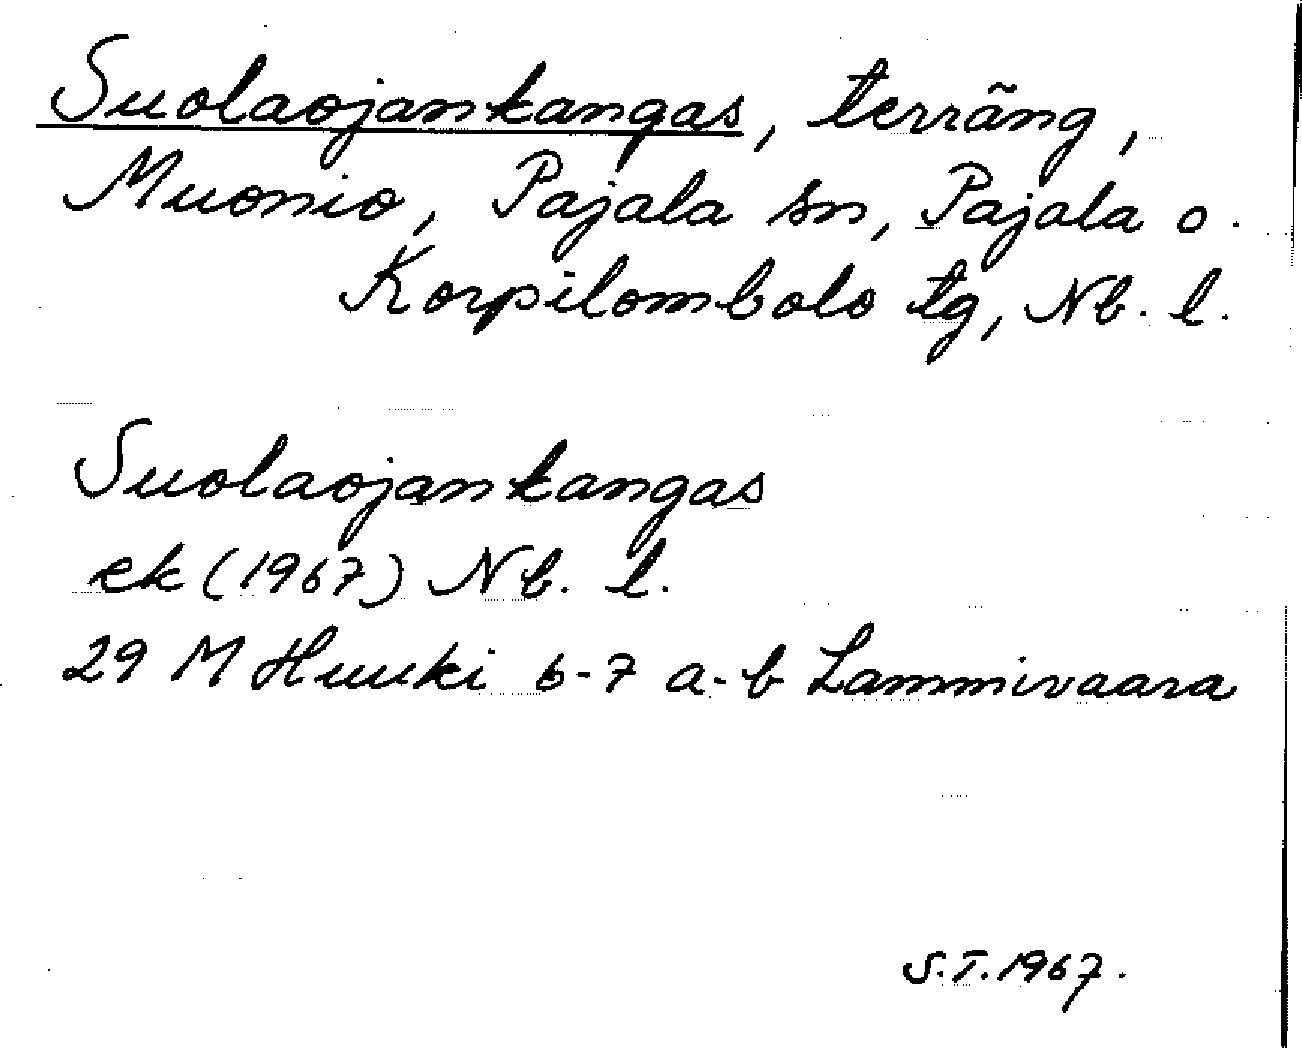 Suolaojankangas, terräng,
Muonio, Pajala sn, Pajala o.
Korpilombolo tg, Nb. l.
Suolaojankangas
ek (1967) Nb. l.
29 M Huuki 6-7 a-b Lammivaara
S.T. 1967.